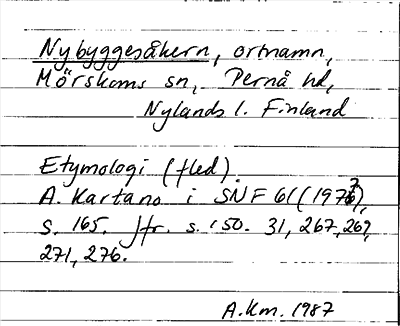 Nybyggesåkern, ortnamn,
Mörskoms sn, Pernå hd,
Nylands l. Finland
Etymologi (fled).
A. Kartano i SNF 61 (197?),
s. 165. Jfr. s. 150. 31, 267, 269,
271, 276.
A.Km. 1987